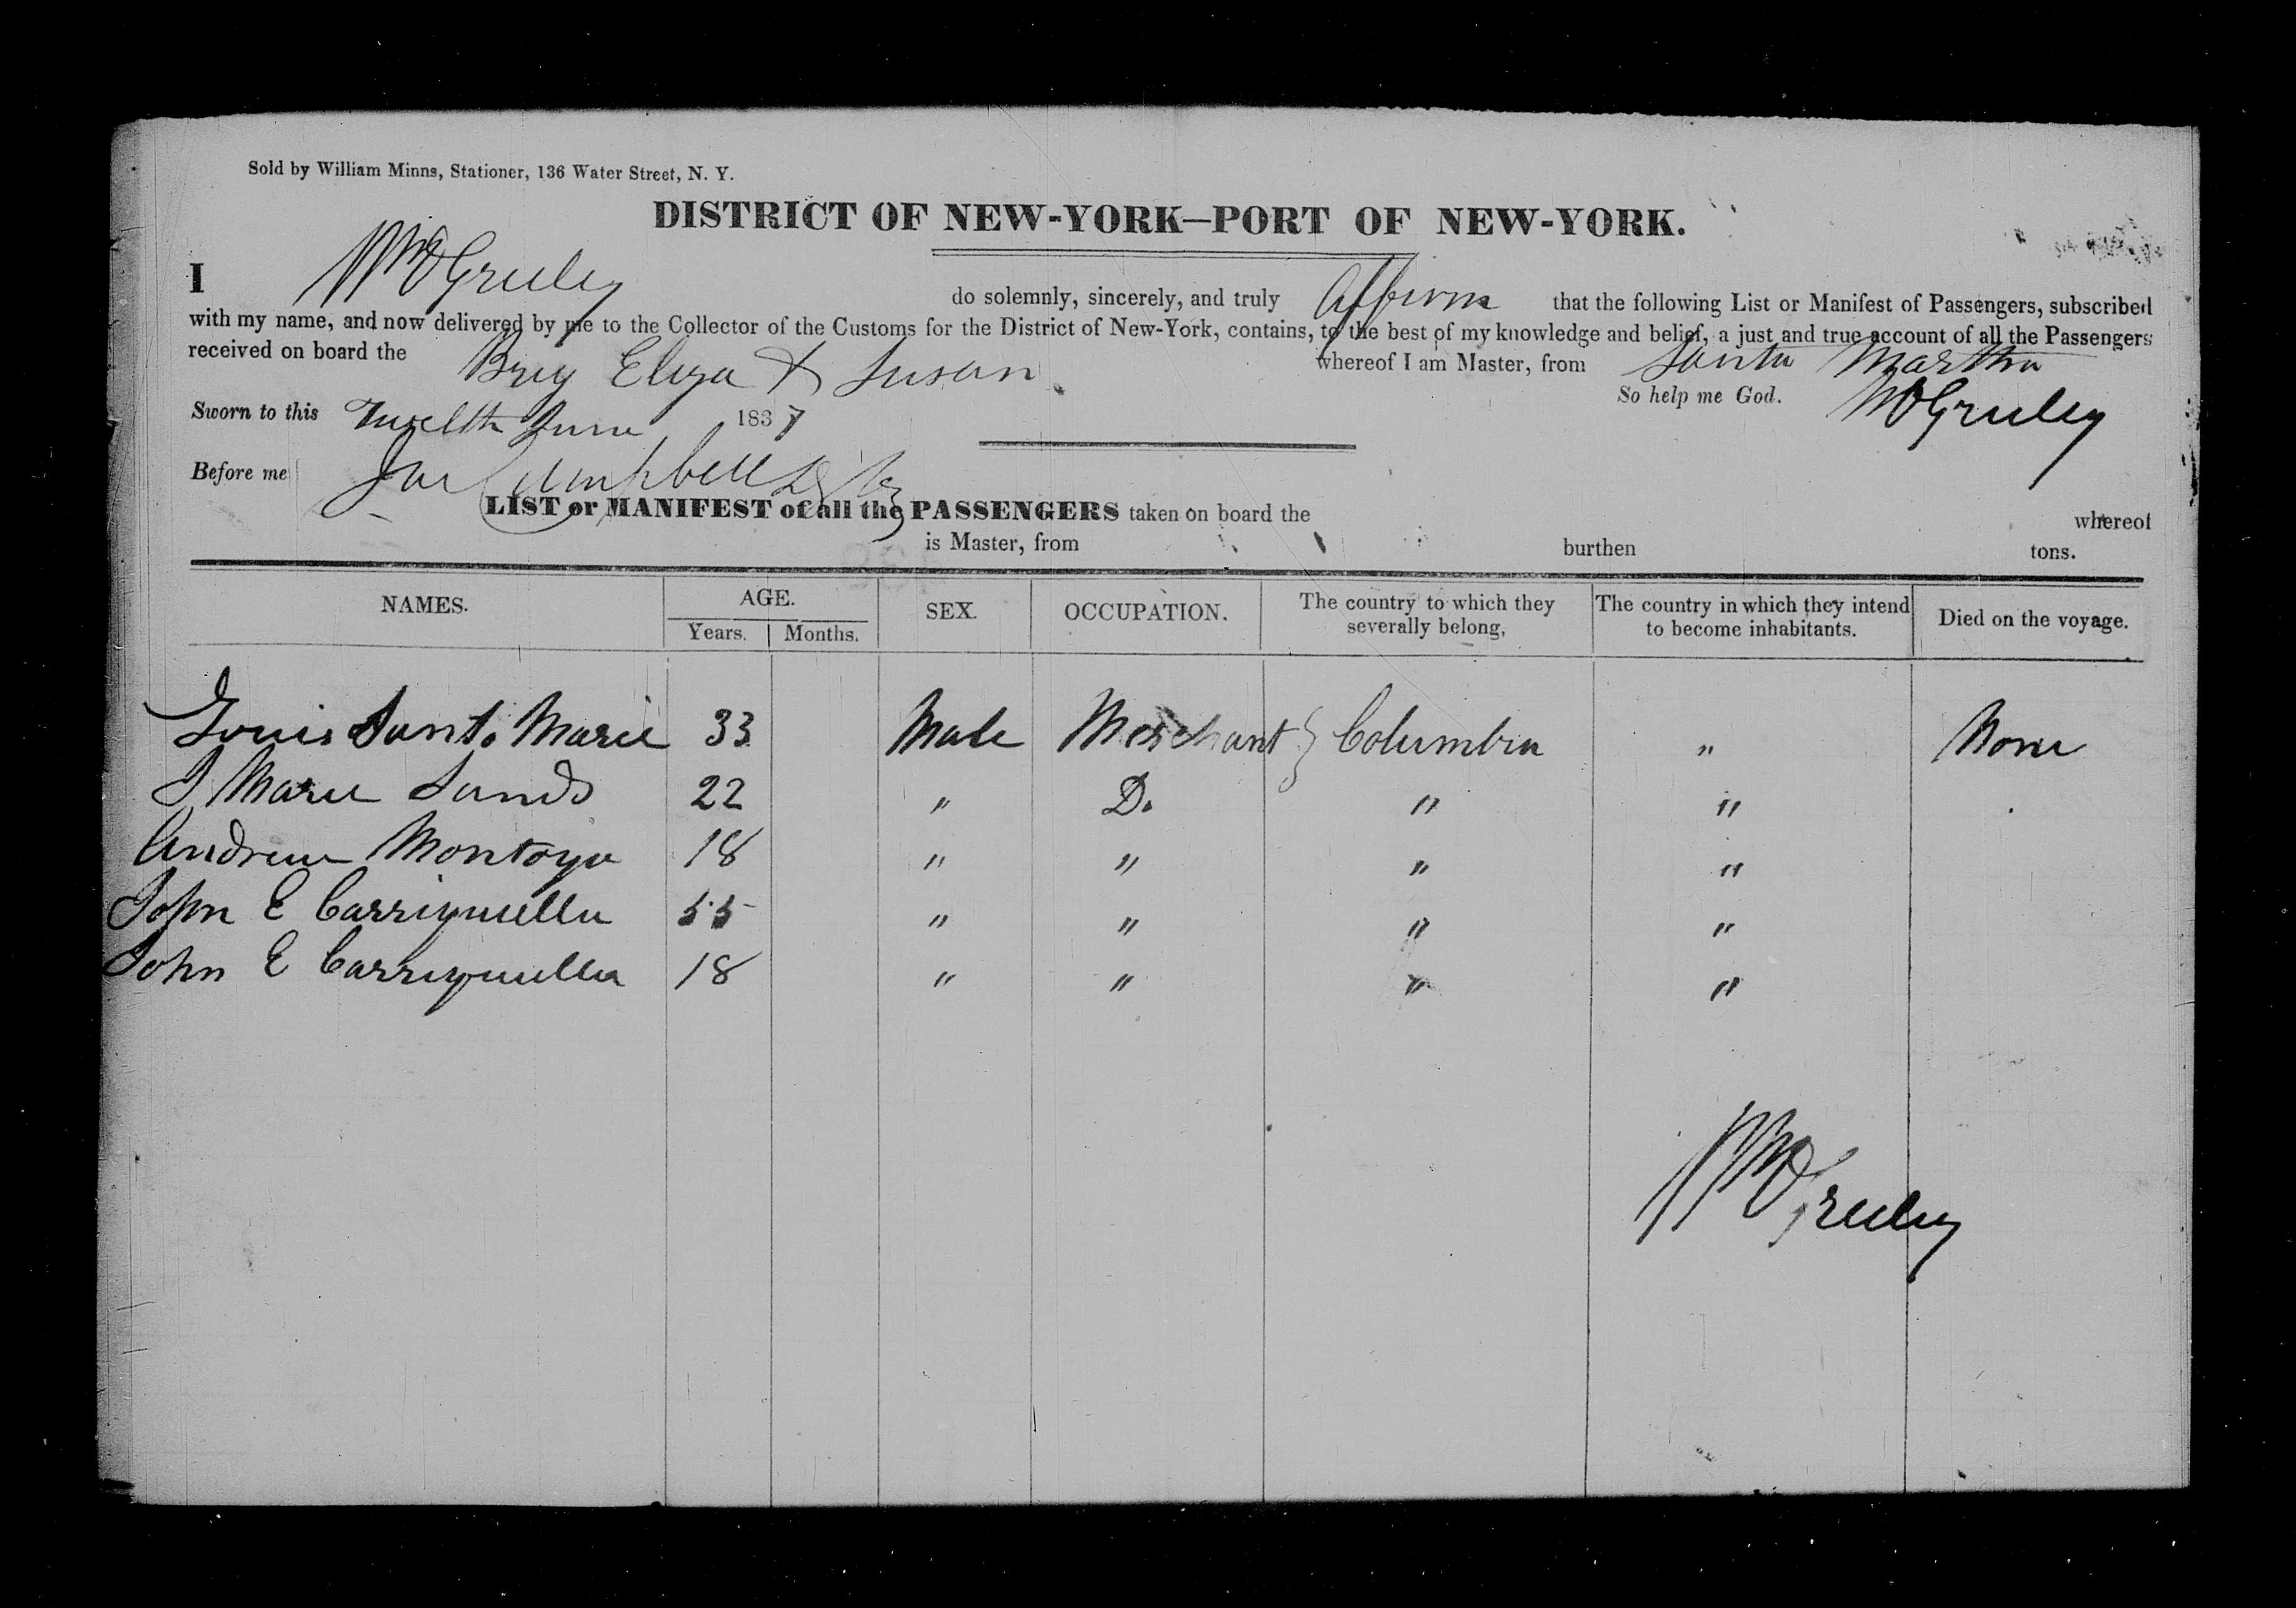 Sold by William Minns, Stationer, 136 Water Street, N. Y.
DISTRICT OF NEW-YORK—PORT OF NEW-YORK.
I Wm D Gruley do solemnly, sincerely, and truly Affirm that the following List or Manifest of Passengers, subscribed
with my name, and now delivered by me to the Collector of the Customs for the District of New-York, contains, to the best of my knowledge and belief, a just and true account of all the Passengers
received on board the Brig Eliza & Susan whereof I am Master, from Santa Martha
So help me God. Gruley
Sworn to this Twelth June 1837
Before me Campbell
LIST or MANIFEST of all the PASSENGERS taken on board the whereof
is Master, from burthen tons.
NAMES. AGE. Years. Months. SEX. OCCUPATION. The country to which they severally belong, The country in which they intend to become inhabitants. Died on the voyage.
Louis Santo Marie 33 Male Merchant } Columbia " None
J Marie Sands 22 " Do " "
Andrew Montoya 18 " " " "
John E Carriquella 55 " " " "
John E Carriquella 18 " " " "
Wm D Gruley